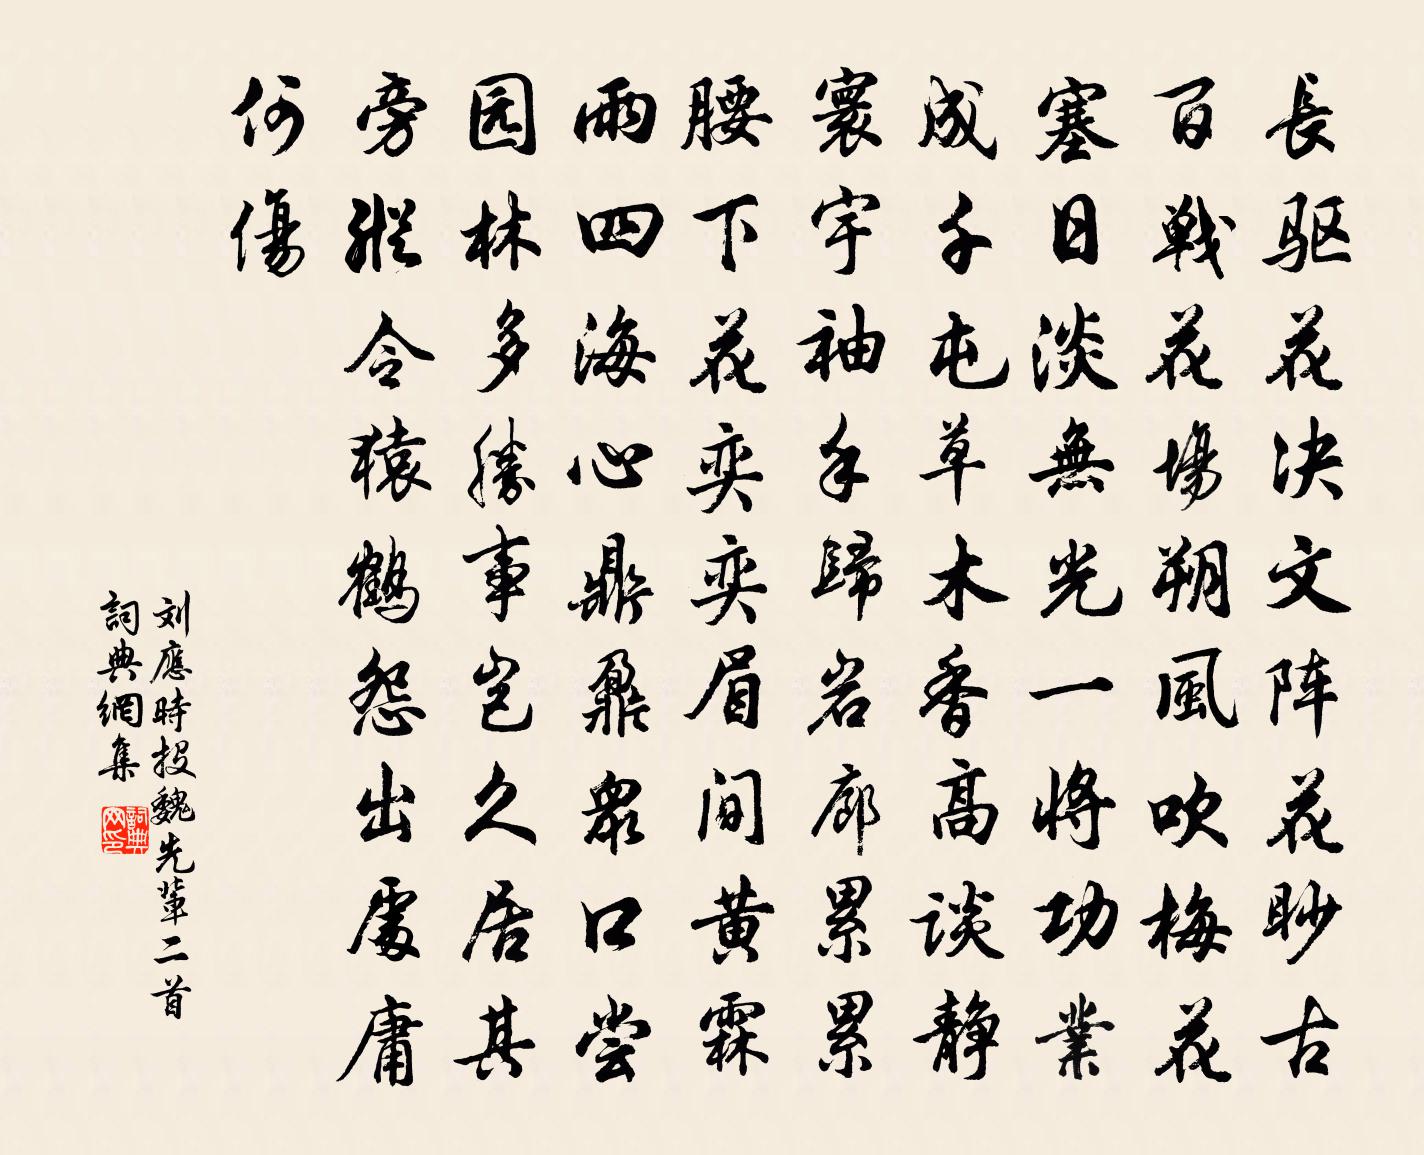 長驱花决文阵花眇古
百戦花場朔風吹梅花
塞日淡無光一将功業
成千屯草木香高谈静
寰宇袖手歸岩廊累累
腰下花奕奕眉间黄霖
雨四海心鼎鼐衆口尝
园林多勝事岂久居其
旁縱令猿鶴怨出處庸
何傷
刘應時投魏先輩二首
詞典網集
詞典网印